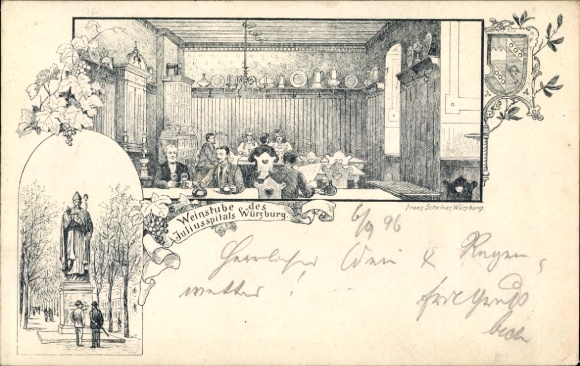 Weinstube des
Juliusspitals Würzburg.
Franz Scheiner, Würzburg.
6/9 96
Herrlicher Wein & Regen-
wetter!